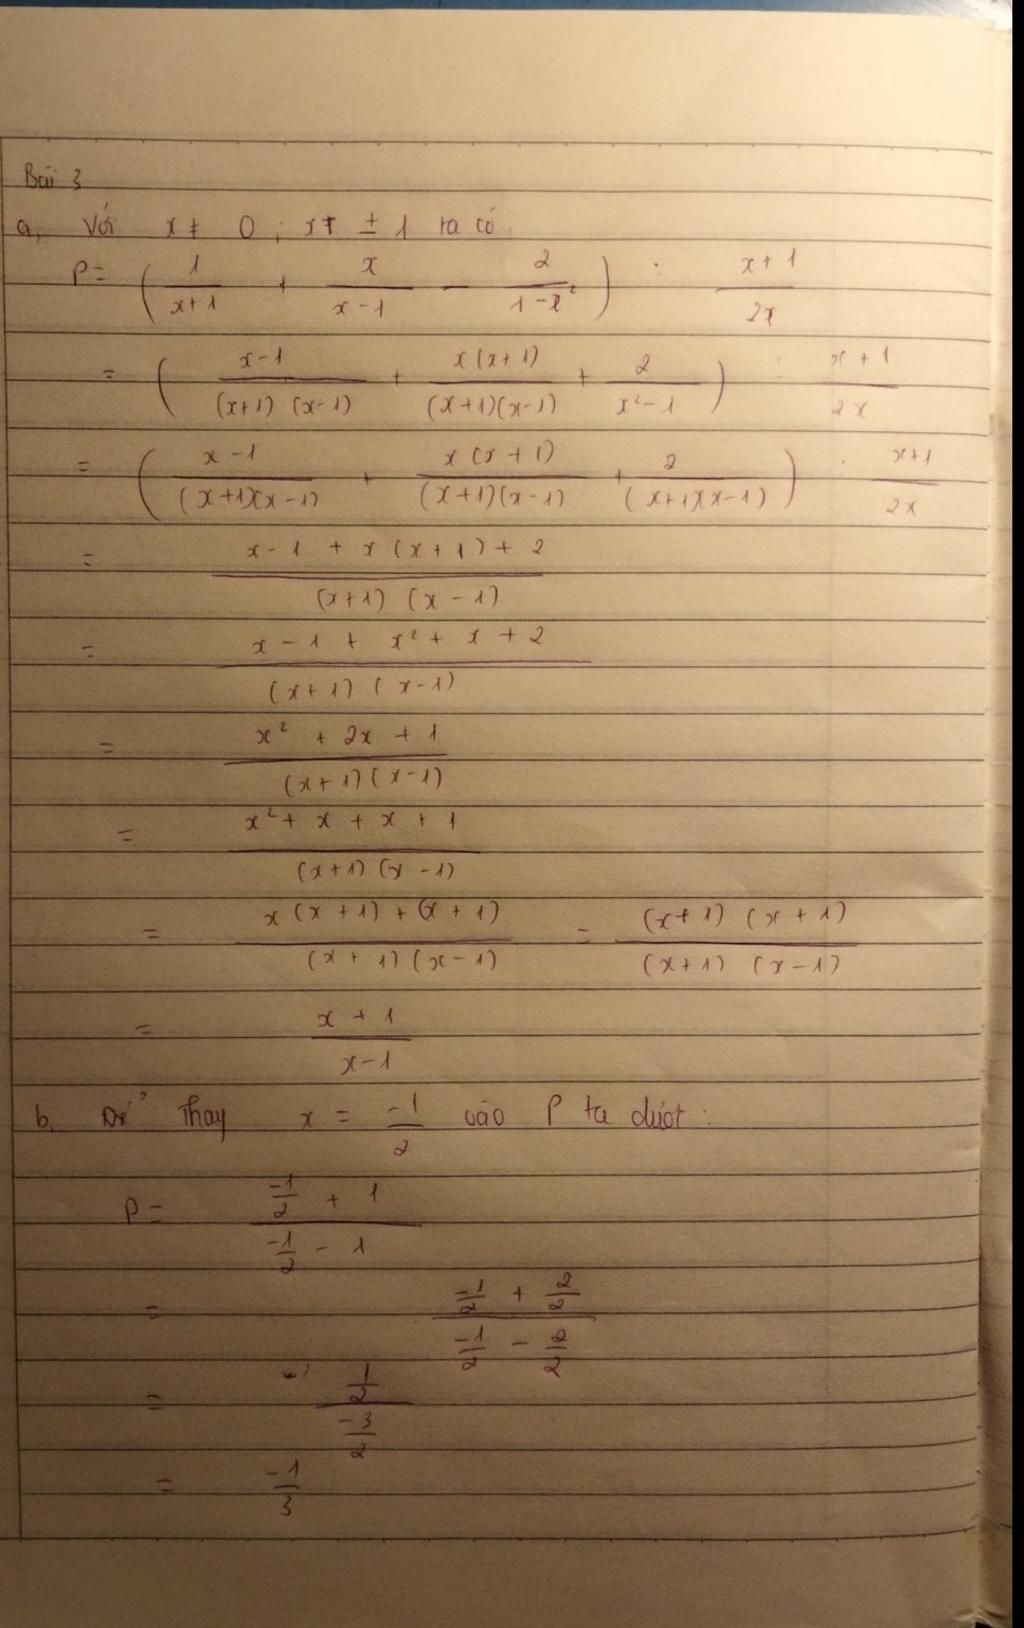 Bài 3
a, Với x ≠ 0 ; x ≠ ± 1 ta có.
P = ( 1/(x+1) + x/(x-1) - 2/(1-x²) ) : (x+1)/2x
= ( (x-1)/((x+1)(x-1)) + x(x+1)/((x+1)(x-1)) + 2/(x²-1) ) : (x+1)/2x
= ( (x-1)/((x+1)(x-1)) + x(x+1)/((x+1)(x-1)) + 2/((x+1)(x-1)) ) : (x+1)/2x
= (x-1 + x(x+1) + 2)/((x+1)(x-1))
= (x - 1 + x² + x + 2)/((x+1)(x-1))
= (x² + 2x + 1)/((x+1)(x-1))
= (x² + x + x + 1)/((x+1)(x-1))
= (x(x+1) + (x+1))/((x+1)(x-1)) = ((x+1)(x+1))/((x+1)(x-1))
= (x+1)/(x-1)
b, Thay x = -1/2 vào P ta được:
P = (-1/2 + 1)/(-1/2 - 1)
= (-1/2 + 2/2)/(-1/2 - 2/2)
= (1/2)/(-3/2)
= -1/3